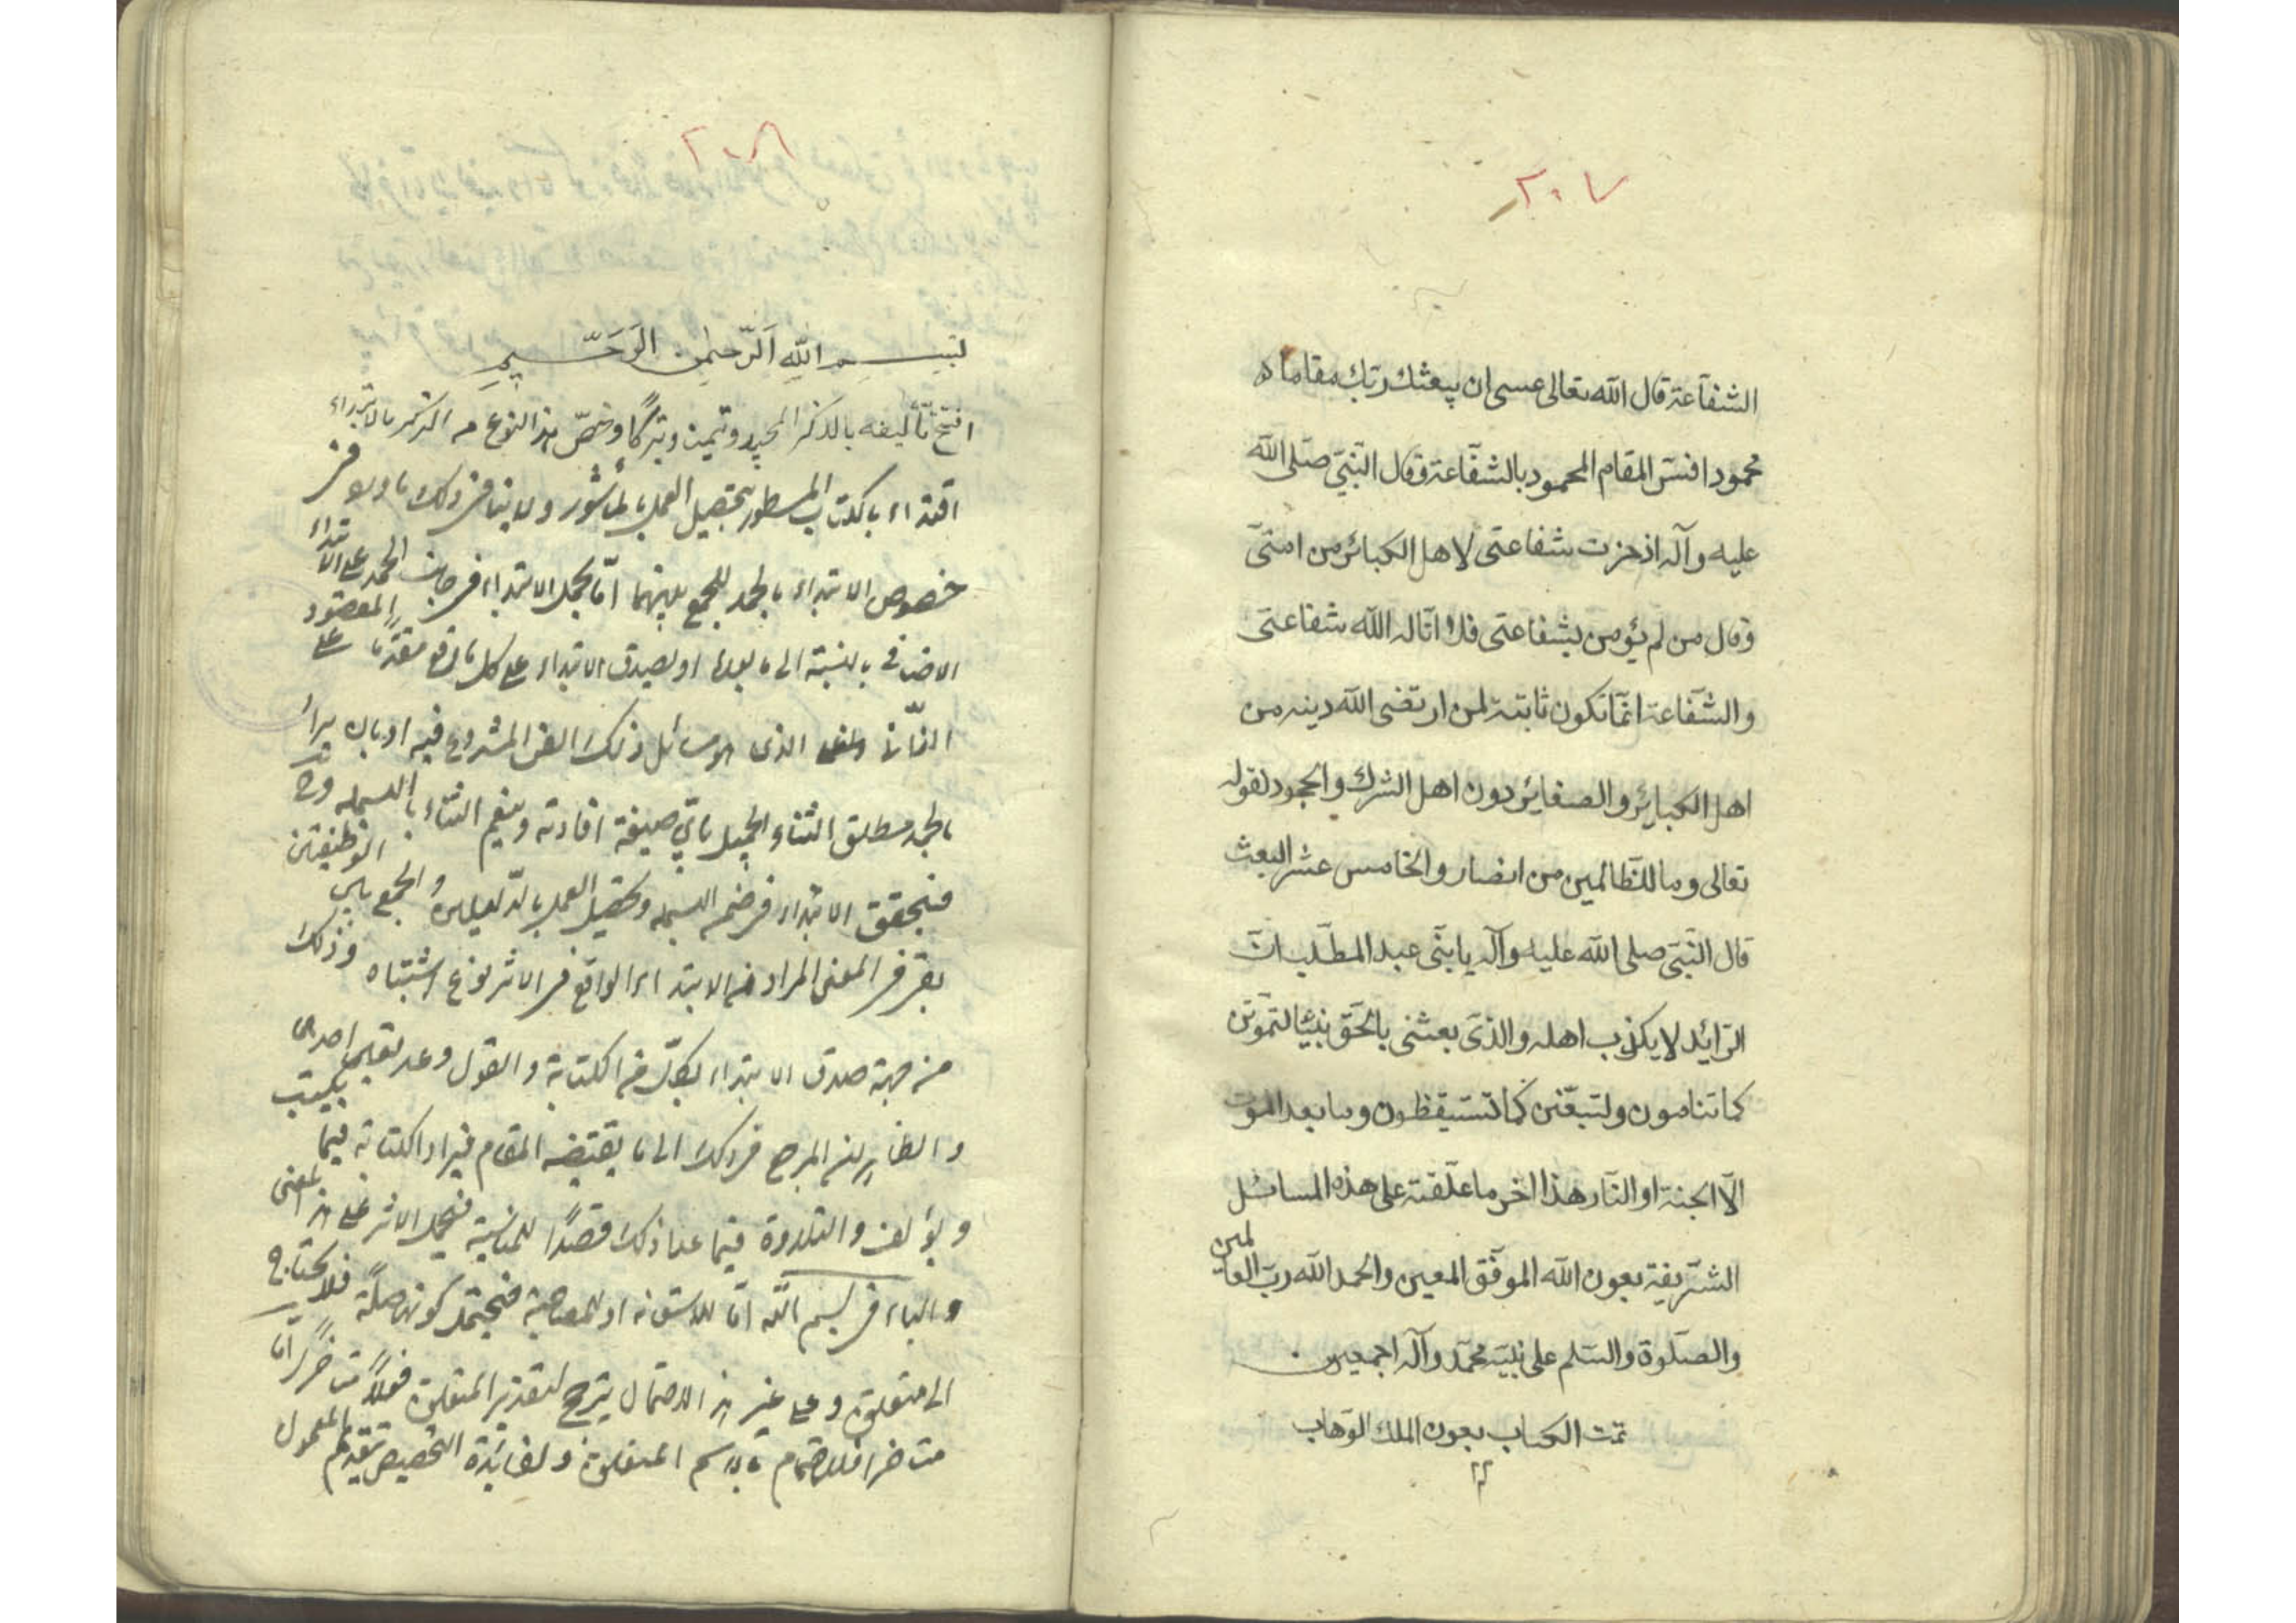 ٢٠٧
الشفاعة قال الله تعالى عسى ان يبعثك ربك مقاما
محمودا فسر المقام المحمود بالشفاعة وقال النبي صلى الله
عليه وآله اذخرت شفاعتى لاهل الكبائر من امتى
وقال من لم يؤمن بشفاعتى فلا اناله الله شفاعتى
والشفاعة انما تكون ثابتة لمن ارتضى الله دينه من
اهل الكبائر والصغائر دون اهل الشرك والجحود لقوله
تعالى وما للظالمين من انصار والخامس عشر البعث
قال النبى صلى الله عليه وآله يا بنى عبد المطلب ان
الرائد لا يكذب اهله والذى بعثنى بالحق نبيا لتموتن
كما تنامون ولتبعثن كما تستيقظون وما بعد الموت
الا الجنة او النار هذا اخر ما علقته على هذه المسائل
الشريفة بعون الله الموفق المعين والحمد الله رب العالمين
والصلوة والسلم على نبيه محمد وآله اجمعين
تمت الكتاب بعون الملك الوهاب
٢٠٨
بسم الله الرحمن الرحيم
افتتح تأليفه بالذكر المجيد وتيمنا وتبركا وخص هذا النوع من الذكر بالابتداء
اقتداء بالكتاب المسطور بتحصيل العمل بالمأثور ولا ينافى ذلك ما ورد فى
خصوص الابتداء بالحمد للجمع بينهما اما بحمل الابتداء فى جانب الحمد على الابتداء
الاضافى بالنسبة الى ما بعدها او لصدق الابتداء على كل ما وقع مقدما على المقصود
الذى هو مسائل ذلك الفن المشروع فيه او بان يراد
بالحمد مطلق الثناء الجميل باى صيغة افادته وينعم الثناء بالبسملة
فيتحقق الابتداء فى ضمن البسملة وتحصيل العمل بالدليلين والجمع بين الوظيفتين
بقى فى المعنى المراد من الابتداء الواقع فى الاثر نوع اشتباه وذلك
من جهة صدق الابتداء بكل من الكتابة والقول وعد تعيين احدى
والظاهر ان المرجح فى ذلك الى ما يقتضيه المقام فيراد الكتابة فيما يكتب
ويؤلف والتلاوة فيما عدا ذلك قصدا للمناسبة فيحمل الاثر على هذا المعنى
والباء فى بسم الله اما للاستعانة او للمصاحبة فيحتمل كونها صلة فلا يحتاج
الى متعلق وعلى غير هذا الاحتمال يترجح تقدير المتعلق فعلا متاخرا اما
متاخرا فللاهتمام باسم المتعلق ولفائدة التخصيص بتقديم المعمول